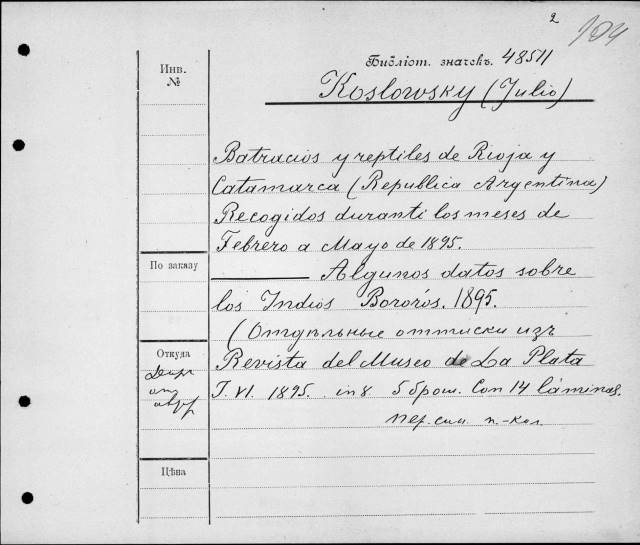 2
104
Инв.
№
Библіот. значекъ. 48511
Koslowsky (Julio)
Batracios y reptiles de Rioja y
Catamarca (Republica Argentina)
Recogidos duranti los meses de
Febrero a Mayo de 1895.
По заказу
Algunos datos sobre
los Indios Bororós. 1895.
(Отдѣльные оттиски изъ
Откуда
Revista del Museo de La Plata
T. VI. 1895. in 8. 5 брош. Con 14 láminas.
Дар
от
автор
пер.
Цѣна